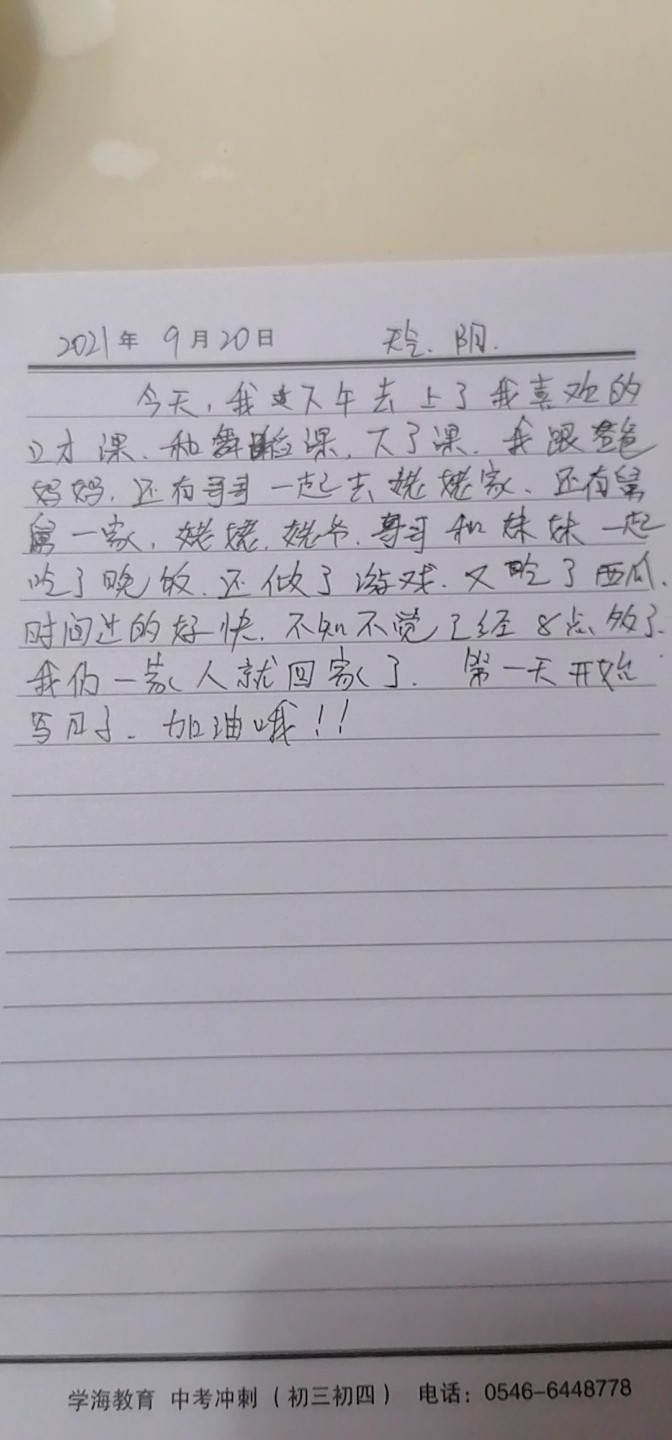 2021年 9月20日 天气. 阴.
今天,我下午去上了我喜欢的
口才课.和舞蹈课,下了课.我跟爸爸
妈妈,还有哥哥一起去姥姥家、还有舅
舅一家,姥姥,姥爷.哥哥和妹妹一起
吃了晚饭.还做了游戏.又吃了西瓜、
时间过的好快.不知不觉已经8点多了.
我们一家人就回家了. 第一天开始
写日子.加油哦!!
学海教育 中考冲刺(初三初四) 电话:0546-6448778